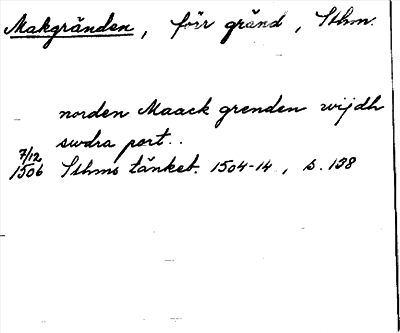 Makgränden, förr gränd, Sthm.
norden Maack grenden wijdh
swdra port..
7/12
1506 Sthms tänkeb. 1504-14, s. 138